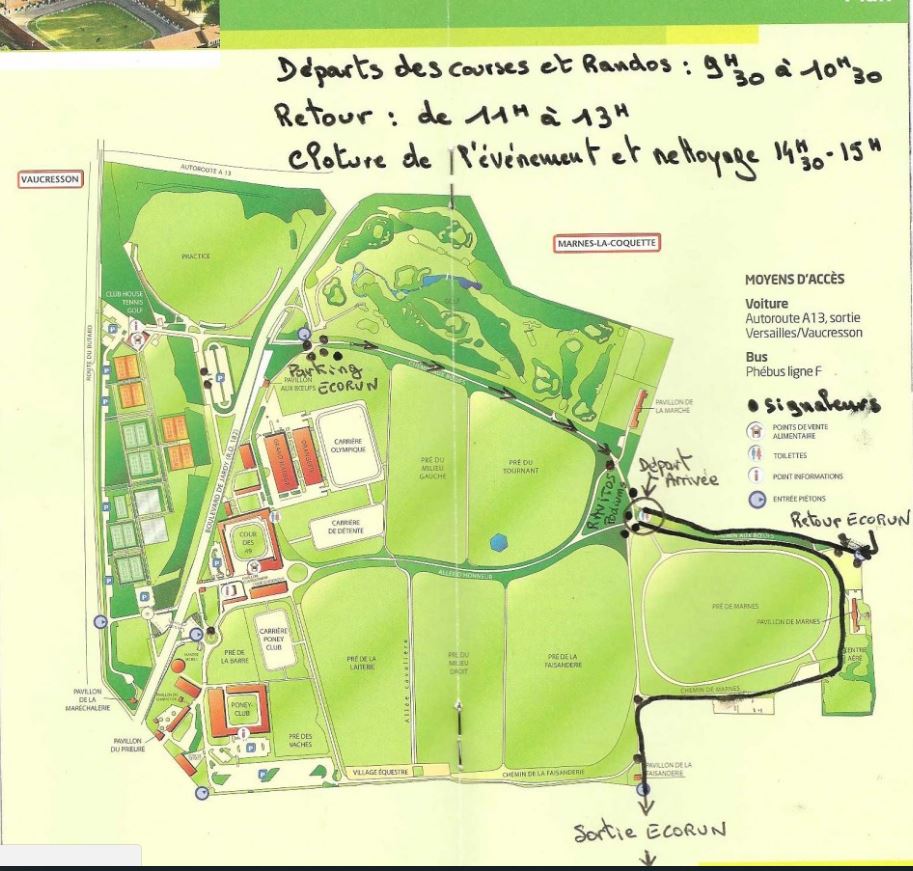 Plan
Départs des courses et Randos : 9H30 à 10H30
Retour : de 11H à 13H
Cloture de l'événement et nettoyage 14H30 - 15H
VAUCRESSON
AUTOROUTE A 13
MARNES-LA-COQUETTE
PRACTICE
MOYENS D'ACCÈS
Voiture
Autoroute A13, sortie
Versailles/Vaucresson
Bus
Phébus ligne F
• signaleurs
POINTS DE VENTE
ALIMENTAIRE
TOILETTES
POINT INFORMATIONS
ENTRÉE PIÉTONS
CLUB HOUSE
TENNIS
GOLF
GOLF
ROUTE DU BUTARD
BOULEVARD DE JARDY (R.D. 182)
Parking
ECORUN
PAVILLON
AUX BŒUFS
PAVILLON DE
LA MARCHE
CARRIÈRE
OLYMPIQUE
PRÉ DU
MILIEU
GAUCHE
PRÉ DU
TOURNANT
Départ
Arrivée
RAVITOS
Podiums
Retour ECORUN
CARRIÈRE
DE DÉTENTE
COUR
DES
49
ALLÉE D'HONNEUR
PRÉ DE MARNES
PAVILLON DE MARNES
CENTRE
AÉRÉ
CHEMIN DE MARNES
CARRIÈRE
PONEY
CLUB
PRÉ DE
LA BARRE
PRÉ DE LA
LAITERIE
Allée cavalière
PRÉ DU
MILIEU
DROIT
PRÉ DE LA
FAISANDERIE
PAVILLON
DE LA
MARÉCHALERIE
PAVILLON
DU PRIEURÉ
PONEY-
CLUB
PRÉ DES
VACHES
VILLAGE ÉQUESTRE
CHEMIN DE LA FAISANDERIE
PAVILLON DE LA
FAISANDERIE
Sortie ECORUN